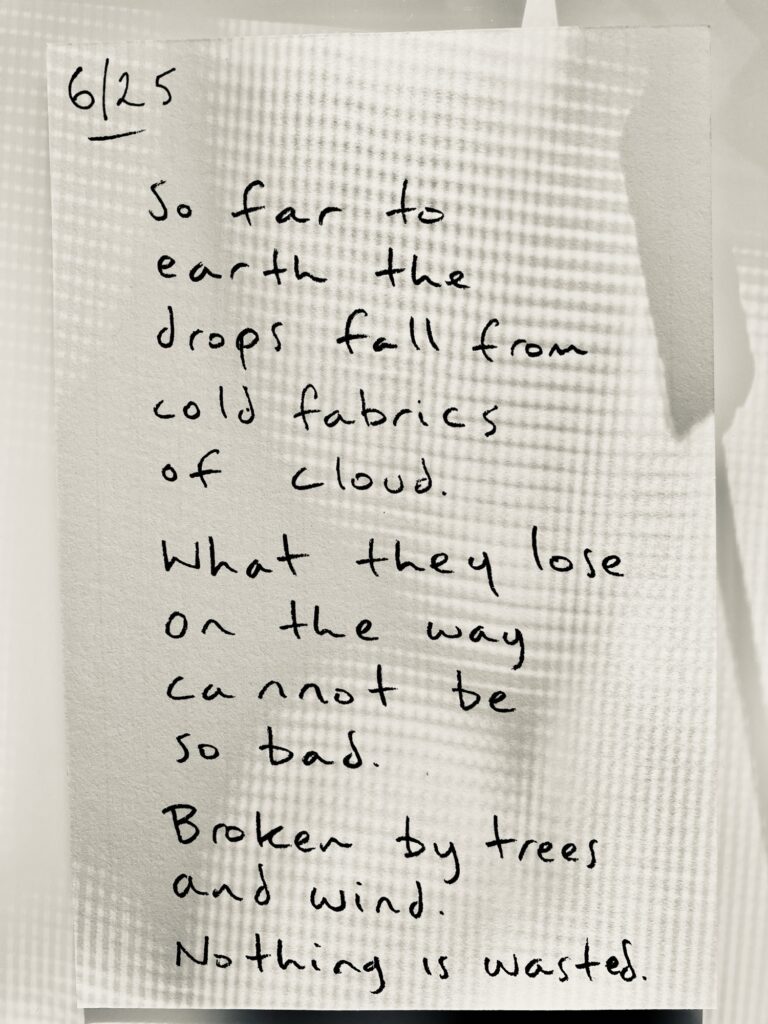 6/25
So far to
earth the
drops fall from
cold fabrics
of cloud.
What they lose
on the way
cannot be
so bad.
Broken by trees
and wind.
Nothing is wasted.